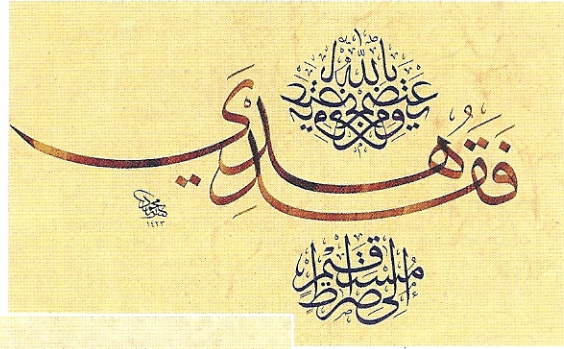 ومن يعتصم بالله
فَقَد هُدِي
إلى صراط مستقيم
١٤٢٣